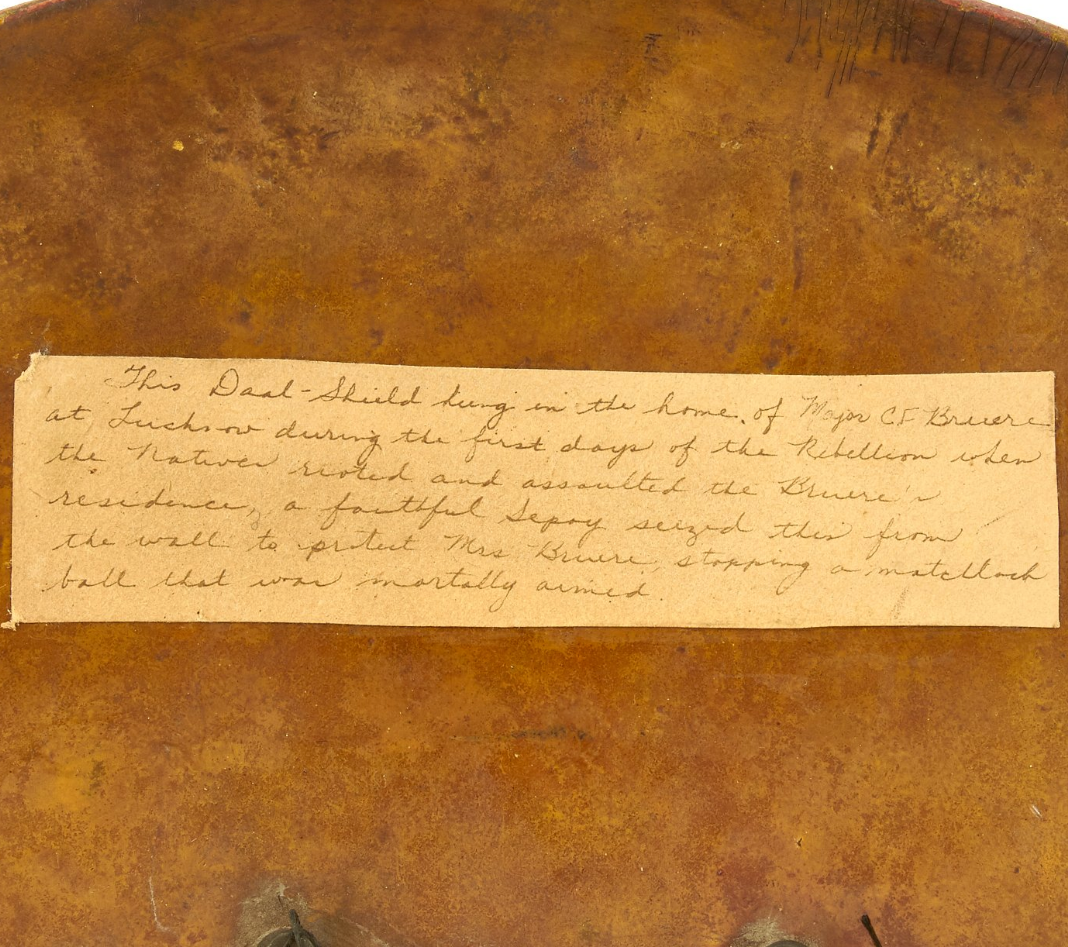 This Daal-Shield hung in the home of Major CF Bruere
at Lucknow during the first days of the Rebellion when
the Natives rioted and assaulted the Bruere's
residence, a faithful Sepoy seized this from
the wall to protect Mrs Bruere, stopping a matchlock
ball that was mortally aimed.